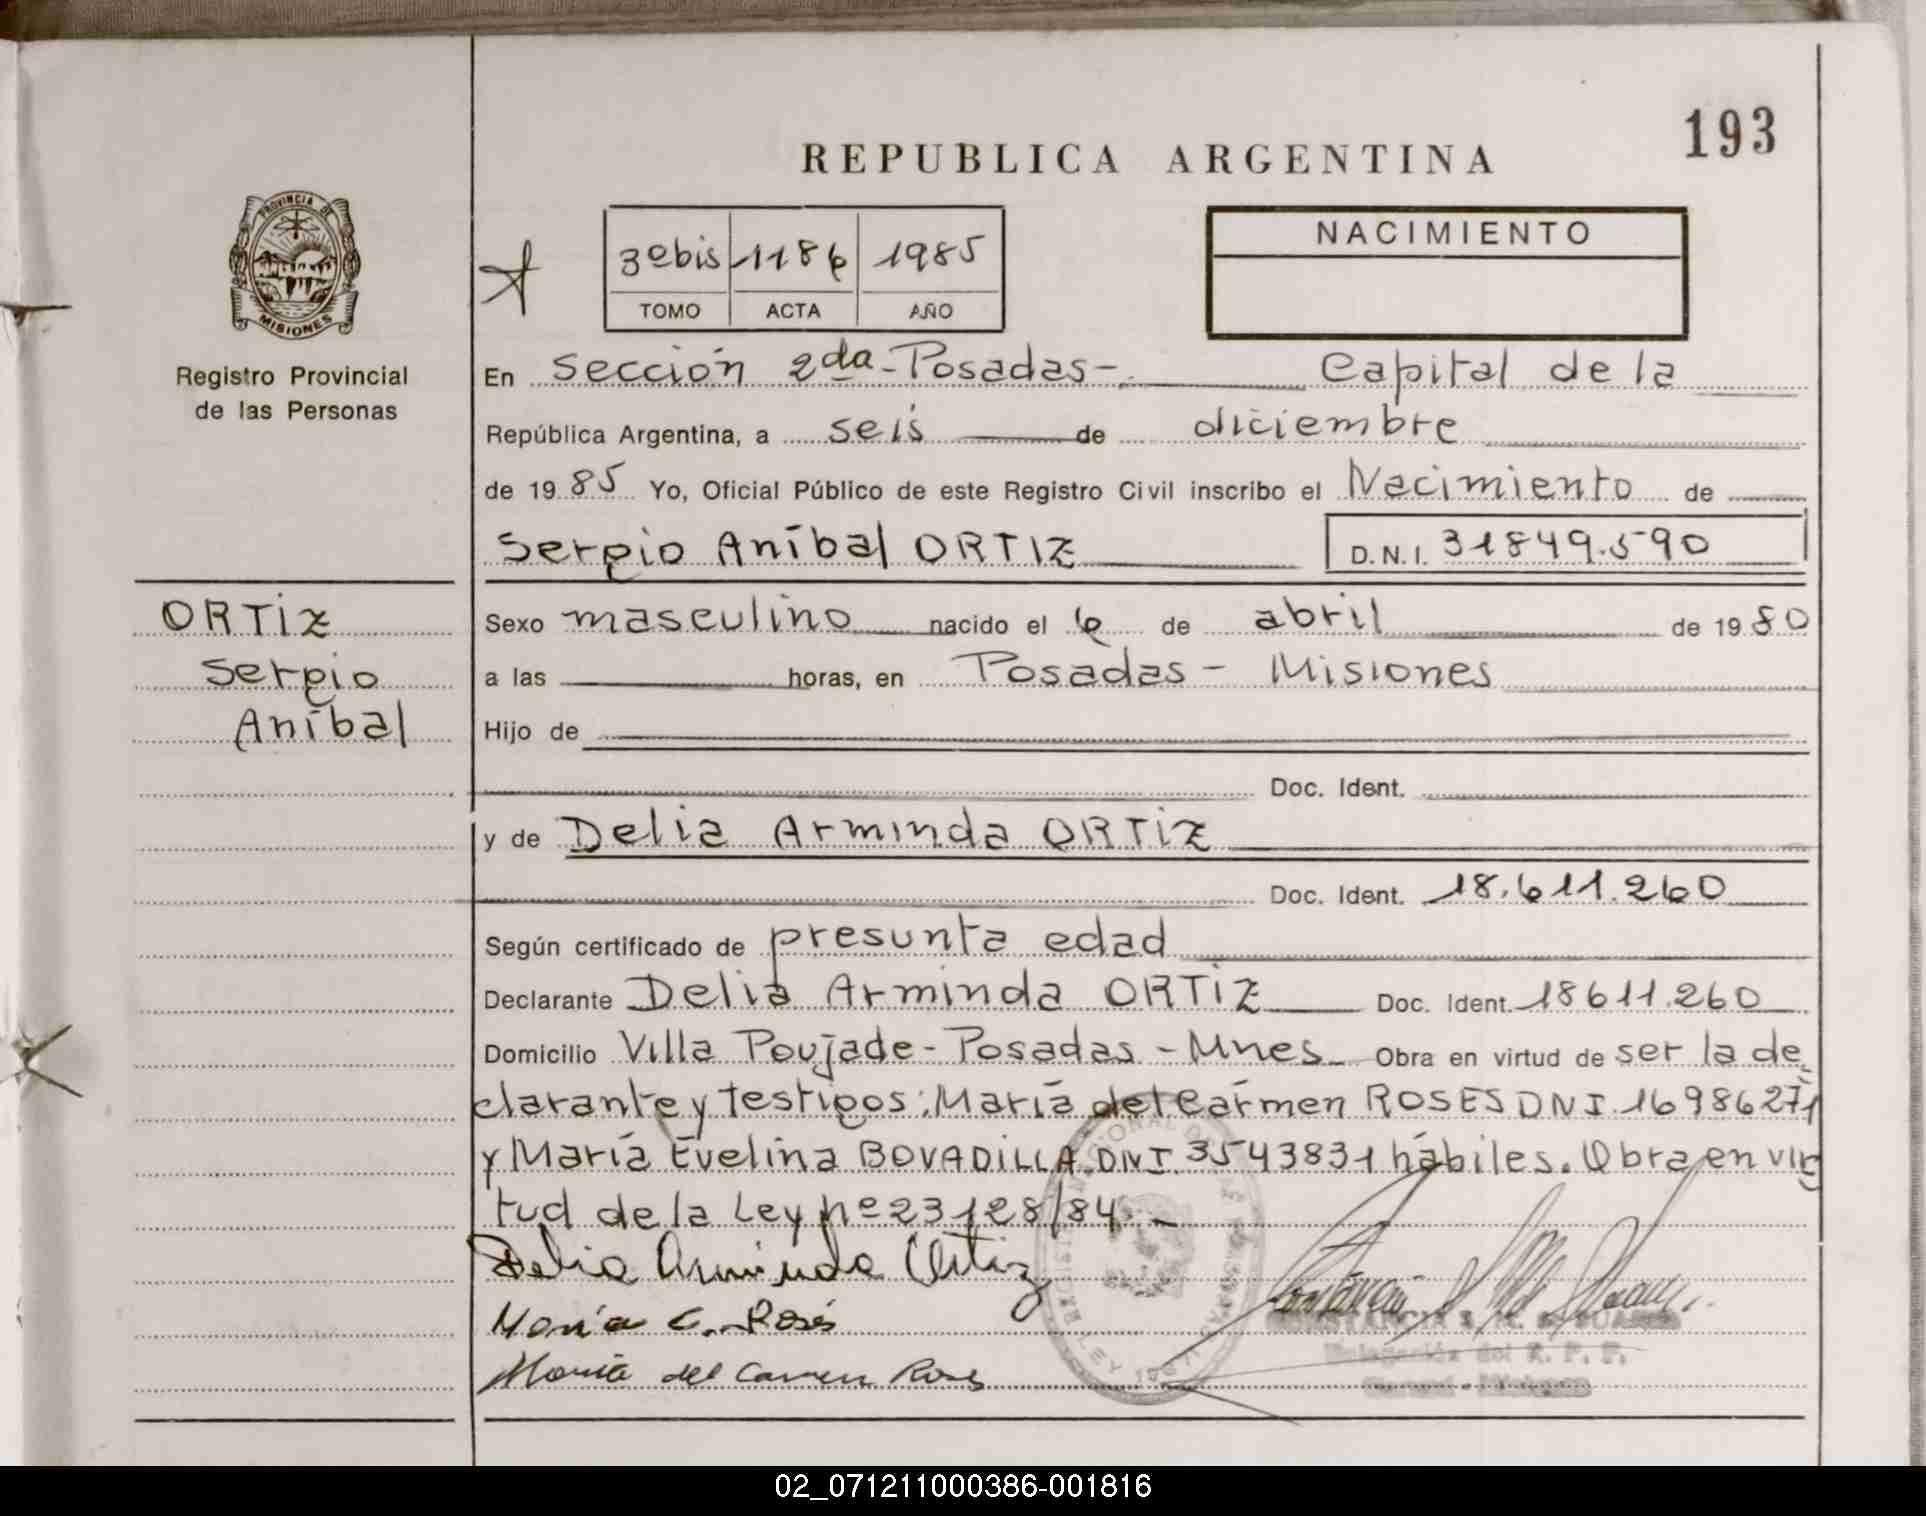 193
REPUBLICA ARGENTINA
PROVINCIA DE
MISIONES
Registro Provincial
de las Personas
3º bis 1186 1985
TOMO ACTA AÑO
NACIMIENTO
En Sección 2da - Posadas - Capital de la
República Argentina, a seis de diciembre
de 1985 Yo, Oficial Público de este Registro Civil inscribo el Nacimiento de
Sergio Aníbal ORTIZ D.N.I. 31849.590
ORTIZ
Sergio
Aníbal
Sexo masculino nacido el 6 de abril de 1980
a las horas, en Posadas - Misiones
Hijo de
Doc. Ident.
y de Delia Arminda ORTIZ
Doc. Ident. 18.611.260
Según certificado de presunta edad
Declarante Delia Arminda ORTIZ Doc. Ident. 18611.260
Domicilio Villa Poujade - Posadas - Mnes Obra en virtud de ser la de
clarante y testigos: María del Cármen ROSES DNI. 16986271
y María Evelina BOVADILLA. DNI. 3543831 hábiles. Obra en vir
tud de la Ley nº 23128/84. -
Delia Arminda Ortiz
María del Carmen Roses
02_071211000386-001816